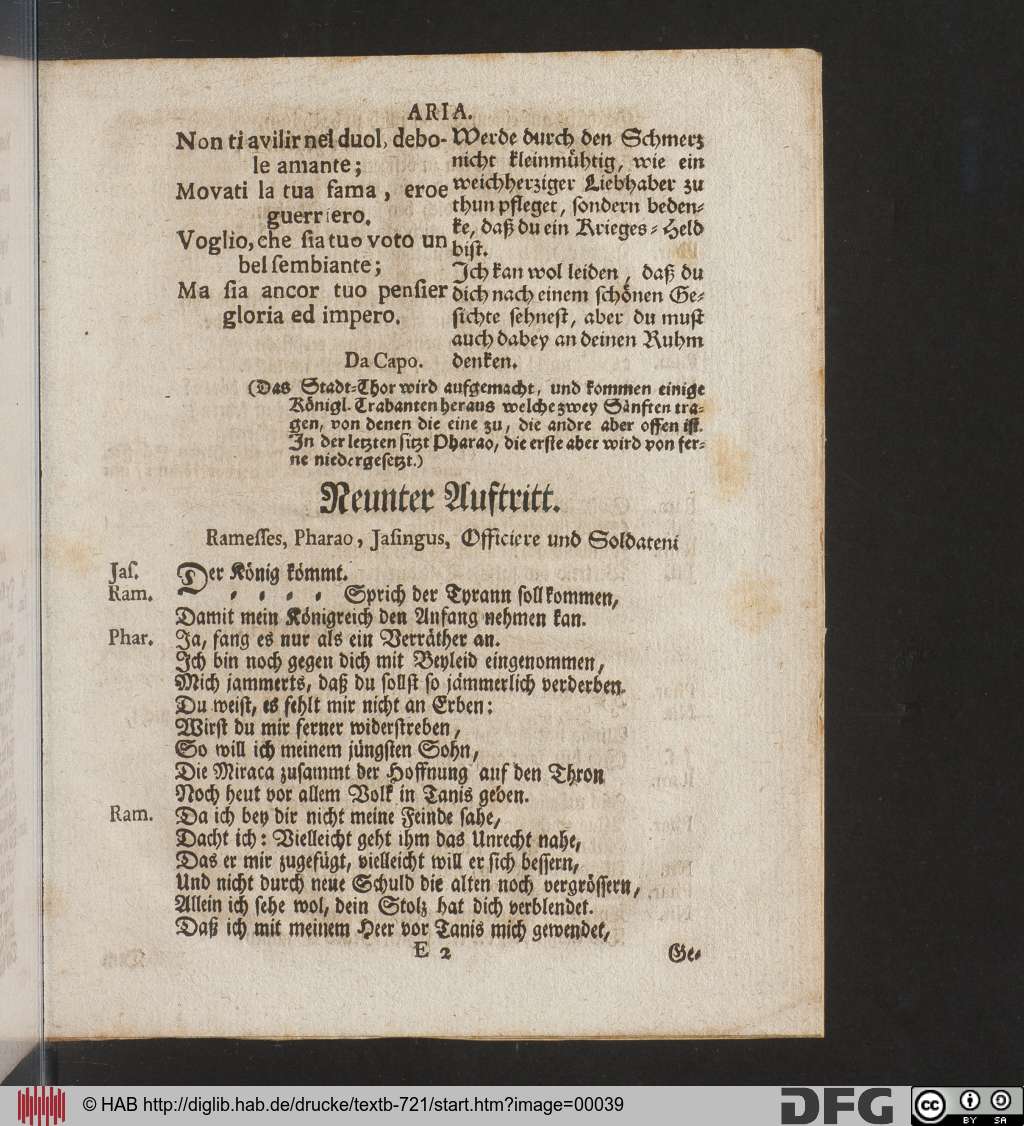 ARIA.
Non ti avilir nel duol, debo-
le amante;
Movati la tua fama, eroe
guerriero.
Voglio, che sia tuo voto un
bel sembiante;
Ma sia ancor tuo pensier
gloria ed impero.
Da Capo.
Werde durch den Schmerz
nicht kleinmühtig, wie ein
weichherziger Liebhaber zu
thun pfleget, sondern beden-
ke, daß du ein Krieges-Held
bist.
Ich kan wol leiden, daß du
dich nach einem schönen Ge-
sichte sehnest, aber du must
auch dabey an deinen Ruhm
denken.
(Das Stadt-Thor wird aufgemacht, und kommen einige
Königl. Trabanten heraus welche zwey Sänften tra-
gen, von denen die eine zu, die andre aber offen ist.
In der letzten sitzt Pharao, die erste aber wird von fer-
ne niedergesetzt.)
Neunter Auftritt.
Ramesses, Pharao, Jasingus, Officiere und Soldateni
Jas. Der König kömmt.
Ram. - - - - Sprich der Tyrann soll kommen,
Damit mein Königreich den Anfang nehmen kan.
Phar. Ja, fang es nur als ein Verräther an.
Ich bin noch gegen dich mit Beyleid eingenommen,
Mich jammerts, daß du sollst so jämmerlich verderben.
Du weist, es fehlt mir nicht an Erben:
Wirst du mir ferner widerstreben,
So will ich meinem jüngsten Sohn,
Die Miraca zusammt der Hoffnung auf den Thron
Noch heut vor allem Volk in Tanis geben.
Ram. Da ich bey dir nicht meine Feinde sahe,
Dacht ich: Vielleicht geht ihm das Unrecht nahe,
Das er mir zugefügt, vielleicht will er sich bessern,
Und nicht durch neue Schuld die alten noch vergrössern,
Allein ich sehe wol, dein Stolz hat dich verblendet.
Daß ich mit meinem Heer vor Tanis mich gewendet,
E 2
Ge-
© HAB http://diglib.hab.de/drucke/textb-721/start.htm?image=00039
DFG
cc BY SA